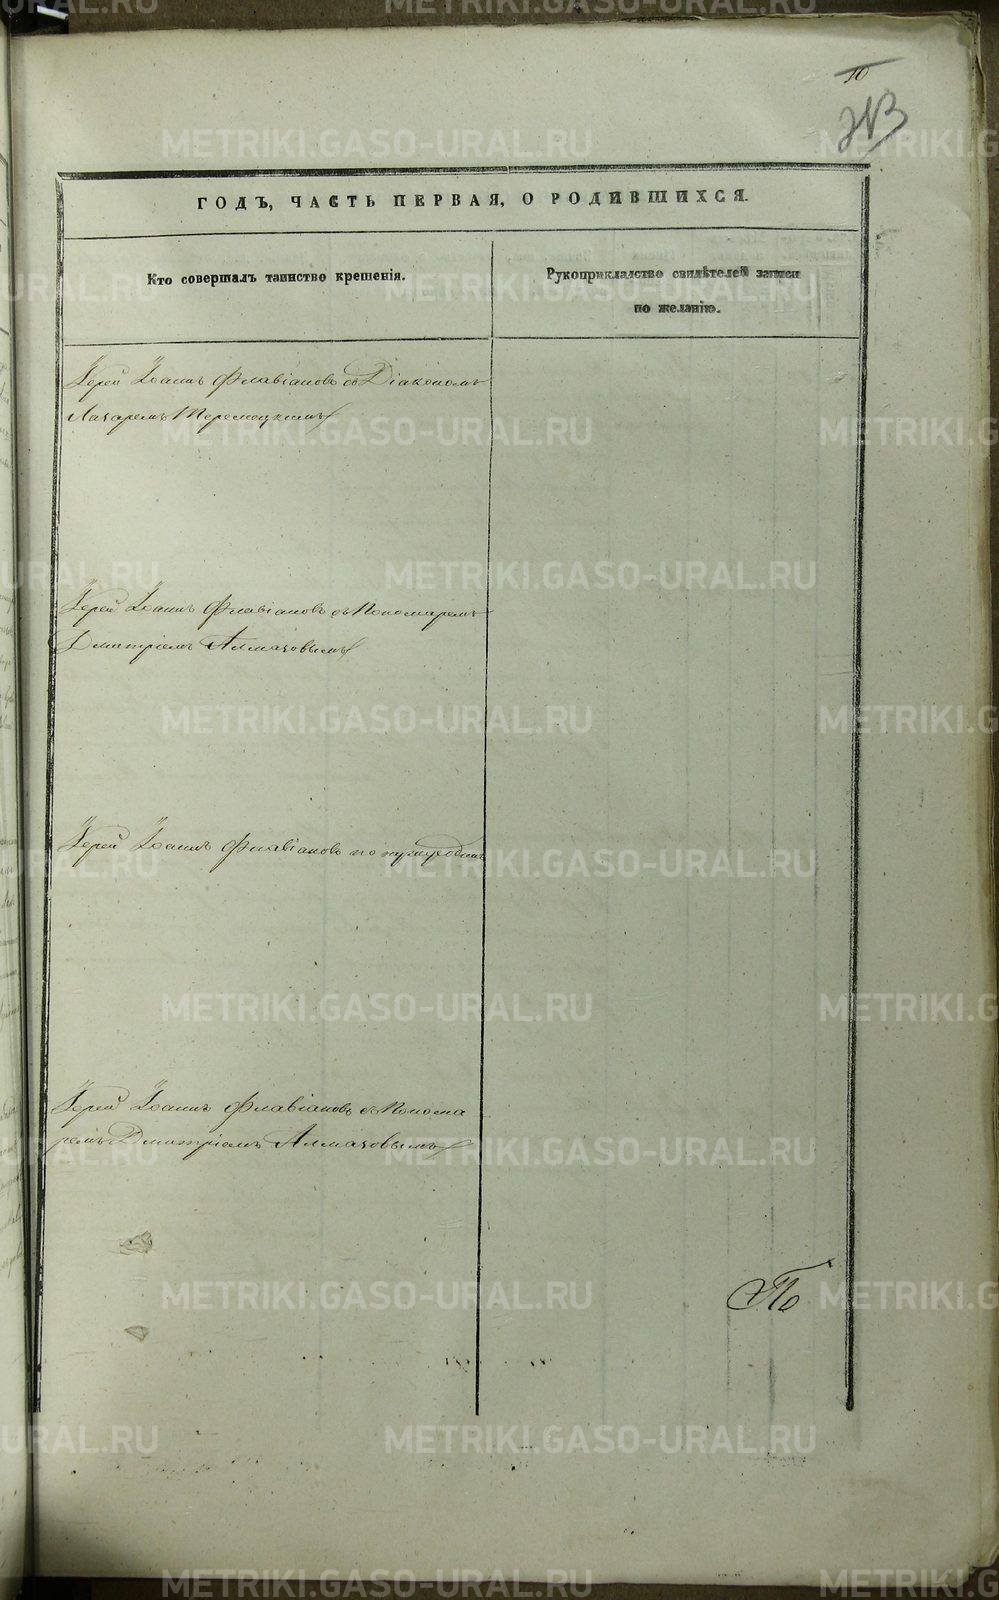 10
213
ГОДЪ, ЧАСТЬ ПЕРВАЯ, О РОДИВШИХСЯ.
Кто совершалъ таинство крещенія.
Рукоприкладство свидѣтелей записи
по желанію.
Іерей Іоаннъ Флавіановъ съ Діакономъ
Лазаремъ
Іерей Іоаннъ Флавіановъ съ Пономаремъ
Дмитріемъ Алмазовымъ
Іерей Іоаннъ Флавіановъ
Іерей Іоаннъ Флавіановъ съ Понома
ремъ Дмитріемъ Алмазовымъ
METRIKI.GASO-URAL.RU